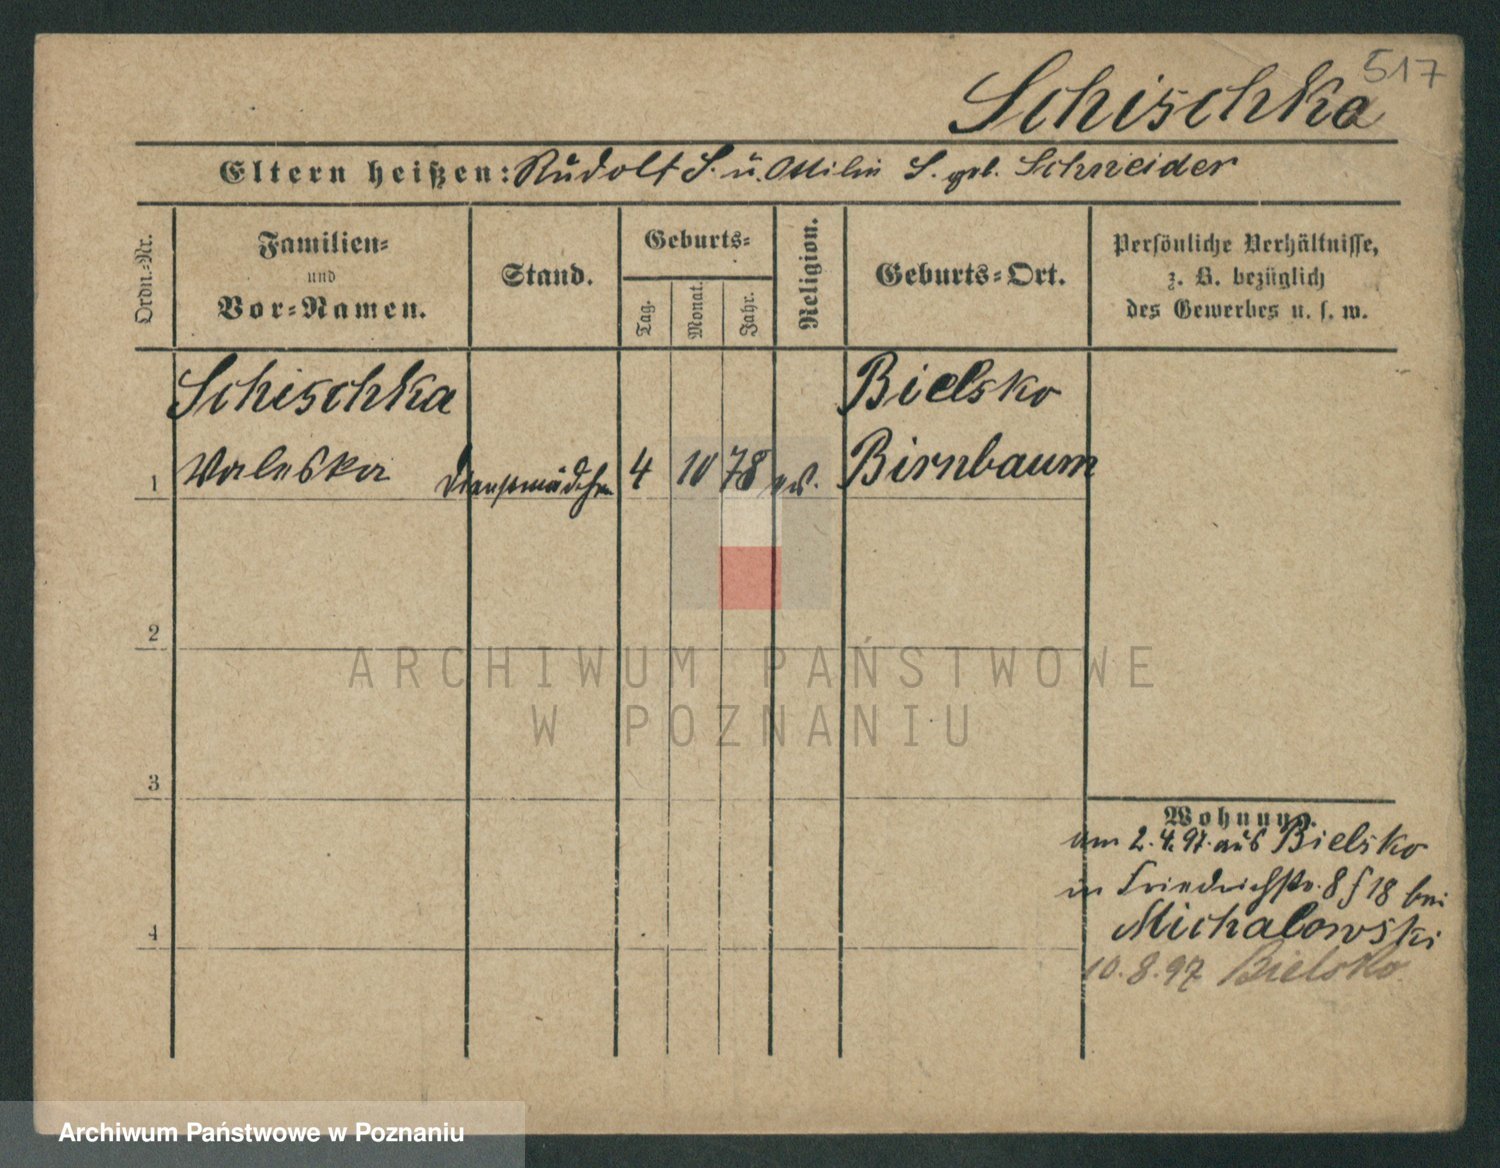 517
Schischka
Eltern heißen: Rudolf S. u. Ottilie S. geb. Schneider
Ordn.-Nr.
Familien-
und
Vor-Namen.
Stand.
Geburts-
Tag.
Monat.
Jahr.
Religion.
Geburts-Ort.
Persönliche Verhältnisse,
z. B. bezüglich
des Gewerbes u. s. w.
Schischka Bielsko
1 Valeska Dienstmädchen 4 10 78 ev. Birnbaum
2
ARCHIWUM PAŃSTWOWE
W POZNANIU
3
Wohnung.
am 2.4.97. aus Bielsko
in Friedrichstr. 8 18 bei
4 Michalowski
10.8.97 Bielsko
Archiwum Państwowe w Poznaniu